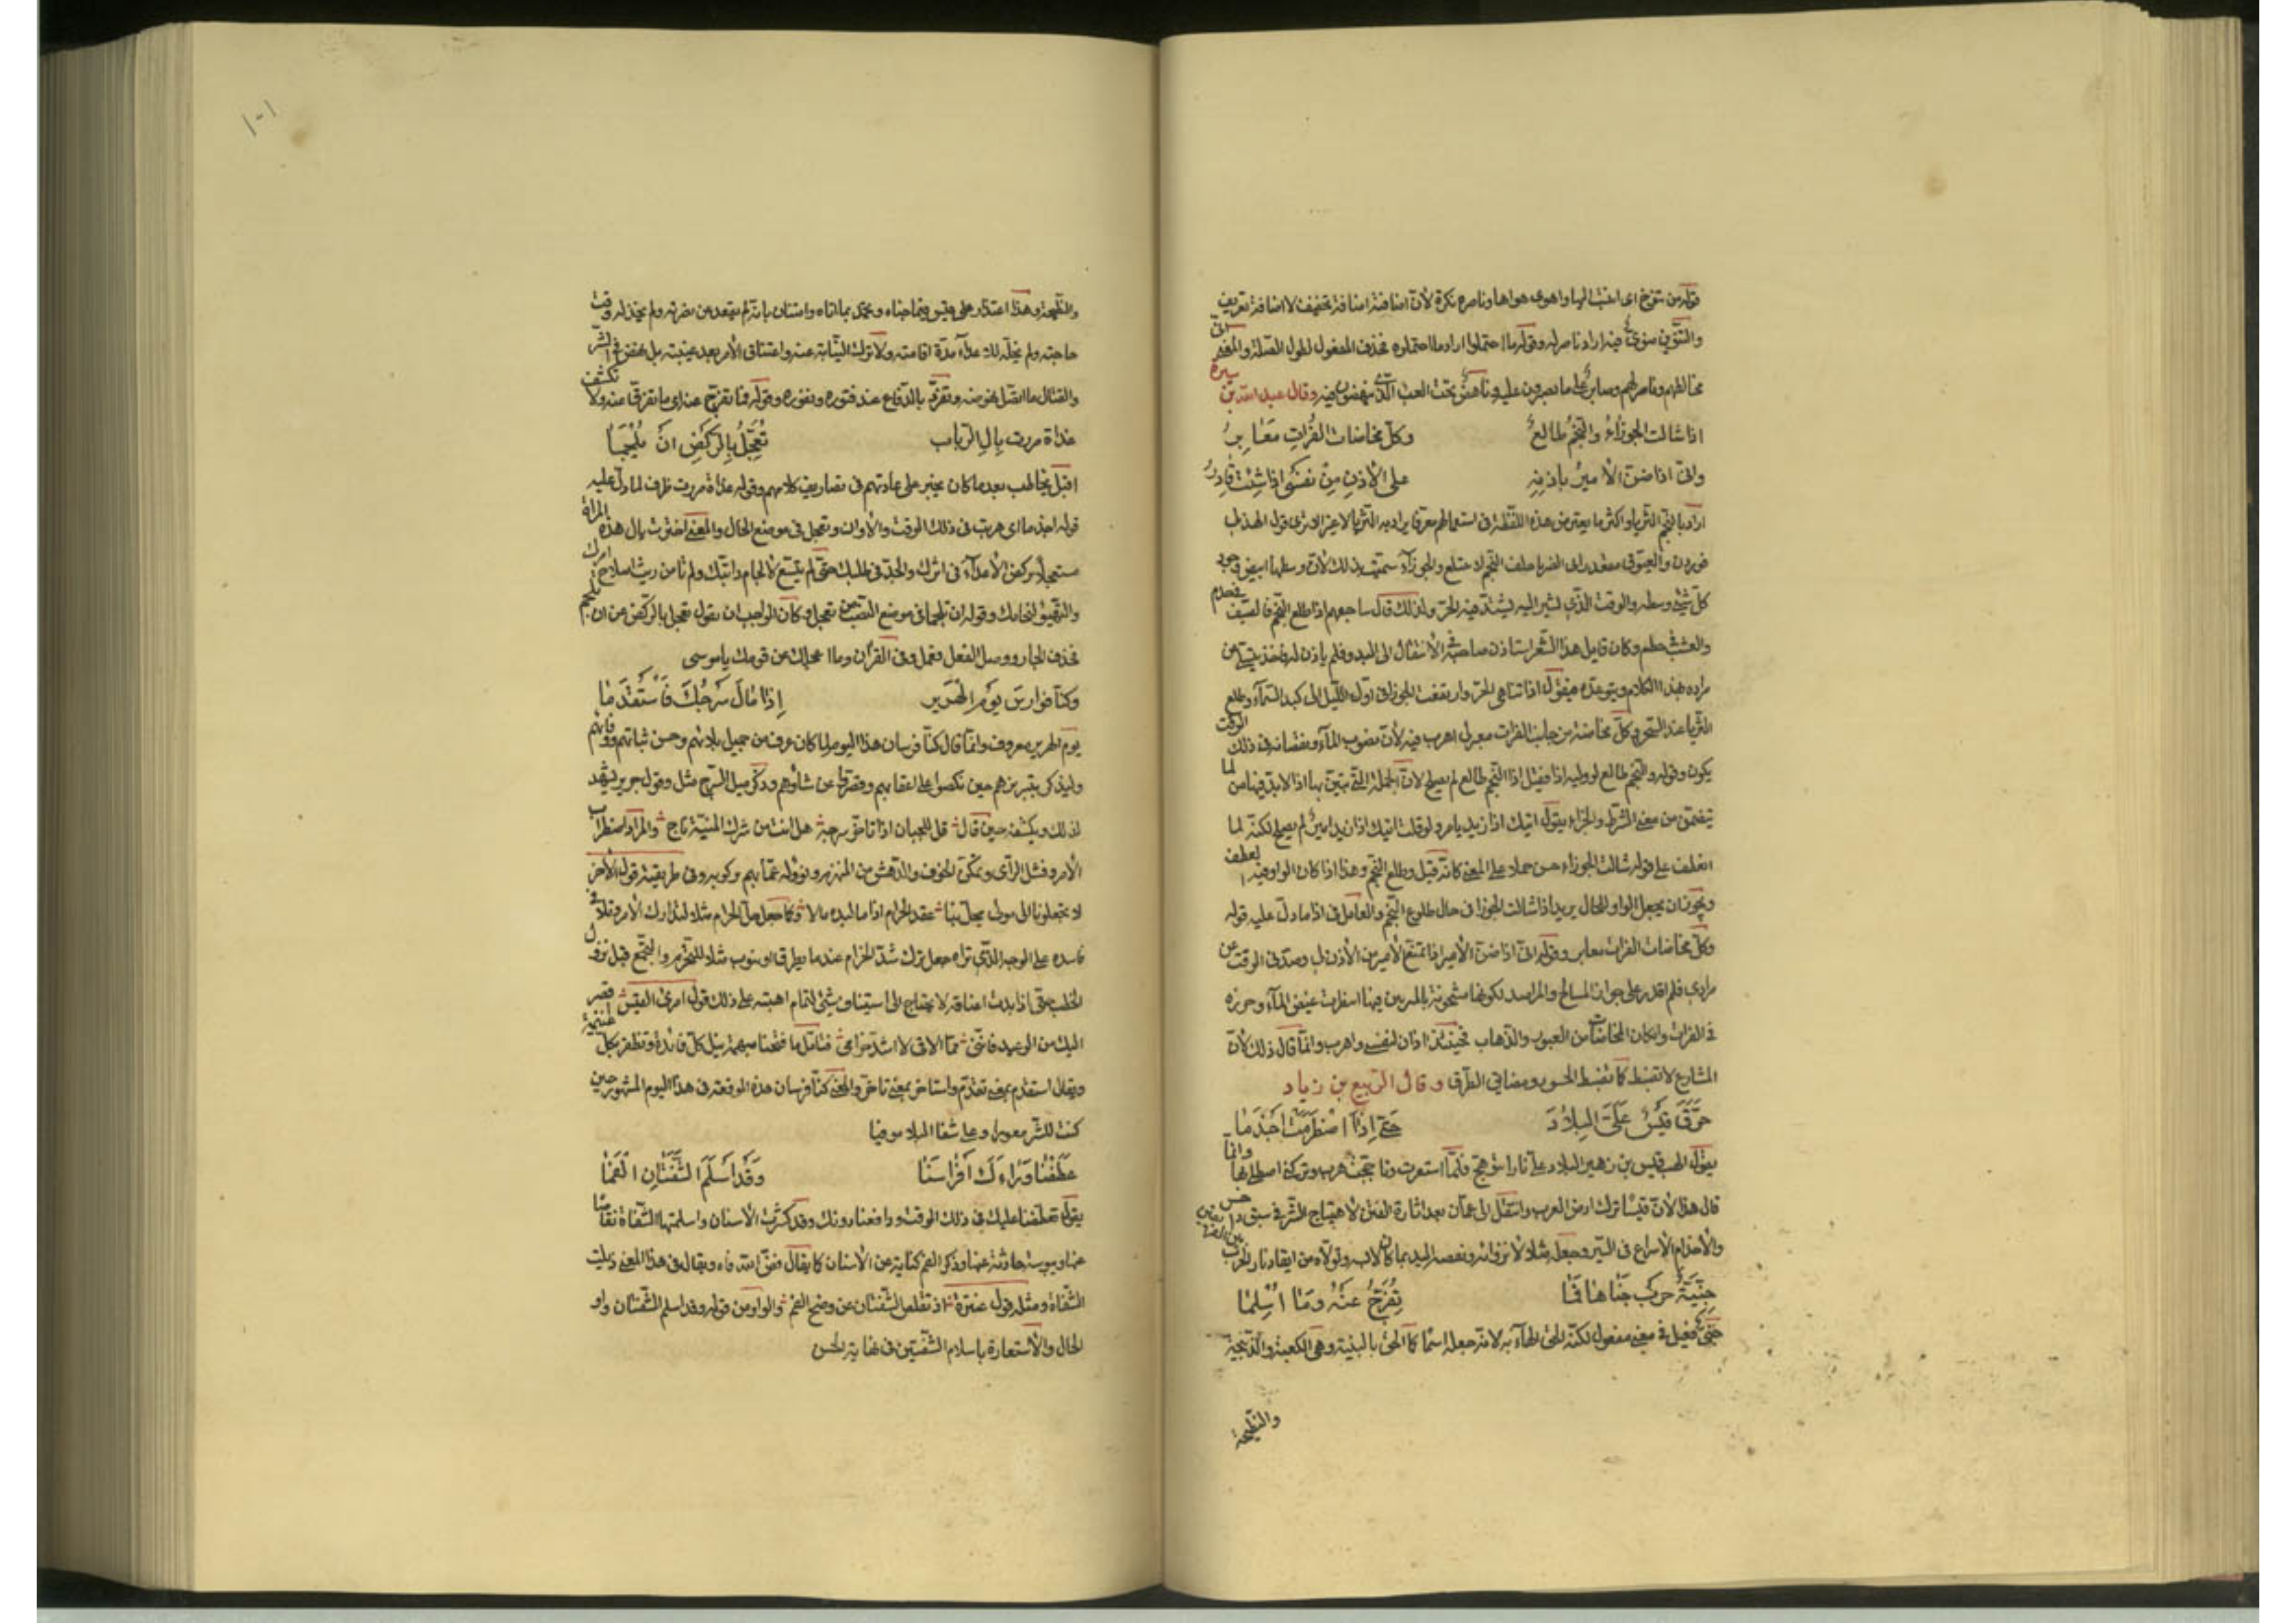 قوله من تنوخ اى انتسب اليها واهوى هواها وناصره نكرة لأن اضافته اضافة تخفيف لا اضافة تعريف
والتنوين منوىّ فيه اراد ناصر له وقوله ما احتملوا اراد ما احتملوه فحذف المفعول لطول الصلة والمعنى انى
مخالطهم وناصر لهم وصابر على ما يصبرون عليه وناهض تحت العبء الذى ينهضون فيه وقال عبد الله بن سبرة
اذا شالت الجوزاءُ والنجمُ طالعٌ وكلّ مخاضات الفُراتِ مَعَابِرُ
وانى اذا ضنّ الأميرُ باذنِهِ على الأذنِ مِنْ نفسى اذا شِئتُ قادرُ
اراد بالنجم الثريا واكثر ما يعترض هذه اللفظة فى استعمالهم معرفا يراد به الثريا لا غير الا ترى قول الهذلى
فوردن والعيوق مقعد رابئ الضربا خلف النجم لا يتتلع والجوزاء سميت بذلك لأن وسطها ابيض وجوز
كل شىء وسطه والوقت الذى اشير اليه يشتد فيه الحر ولذلك قال ساجعهم اذا طلع النجم فالصيف فى حدم
والعشب فى حطم وكان قايل هذا الشعر استاذن صاحبه فى الأنتقال الى البدو فلم ياذن له فاخذ يتبين
مراده بهذا الكلام ويتوعده فيقول اذا تناهى الحر وارتفعت الجوزا فى اول الليل الى كبد السماء وطلع
الثريا عند السحر فكل مخاضة من جانب الفرات معبر لى اهرب فيه لأن نضوب الماء ونقصانه فى ذلك الوقت
يكون وقوله والنجم طالع لو وليه اذا فقيل اذا النجم طالع لم يصلح لأن الجملة التى تبين بها اذا لا بد فيها من لما
يتضمن من معنى الشرط والجزاء يقول اتيك اذا زيد يامر ولو قلت اتيك اذا زيد امير لم يصلح لكنه لما
انعطف على قوله شالت الجوزاء حسن حملا على المعنى كانه قيل وطلع النجم وهذا اذا كان الواو فيه لعطف
ويجوز ان يجعل الواو للحال يريد اذا شالت الجوزا فى حال طلوع النجم والعامل فى اذا ما دل عليه قوله
وكل مخاضات الفرات معابر وقوله انى اذا ضن الأمير اذا تمنع الأمير من الأذن لى وصدنى الوقت عن
مرادى فلم اقدر على جواز المسالح والمراصد لكونها مشحونة بالمرتبين فيها اسفرت غيض الماء وجزره
فى الفرات وامكان المخاضات من العبور والذهاب فحينئذ اذان لنفسى واهرب وانما قال ذلك لأن
المشارع لا تضبط كما تضبط الجسور ومضايق الطرق وقال الربيع بن زياد
حَرَّقَ قَيْسٌ عَلَىَّ البِلادَ حَتى اِذَا اضْطَرَمَتْ اَجْذَمَا
يقول الهب قيس بن زهير البلاد على نارا تتوهج فلما استعرت وتاججت هرب وتركنى اصطلى بها وانما
قال هذا لأن قيسا ترك ارض العرب وانتقل الى عمان بعد اثارة الفتن لاهتياج الشر فى سبق داحس
والأجذام الأسراع فى السير وجعله مثلا لأنزوائه ونفضه اليد بما كان لابسه وتولاه من ايقاد نار الحرب
جَنِيَّةُ حَربٍ جَنَاهَا فَمَا تُفُرِّجَ عَنْهُ وَمَا اُسْلِمَا
جنى فعيل فى معنى مفعول لكنه الحق الهاء به لأنه جعله اسما كما الحق بالبنية وهى الكعبة والذبيحة
والنطيحة
والنطيحة وهذا اعتداد على قيس فيما جناه وتحمد بما اتاه وامتنان بانه لم يقعد عن نصرته ولم يخذله وقت
حاجته ولم يخله للاعداء مدة اقامته ولا ترك النيابة عنه واعتناق الأمر بعد غيبته بل خاض فى الشر
والقتال ما اتصل بخوضه وتفرد بالدفاع عند فتوره ونفوره وقوله فما تفرج عنه اى ما تفرقنا عنه ولا تكشف
غداة مررت بِالِ الرّباب تُعَجِّلُ بِالركضِ انْ تُلْجِمَا
اقبل يخاطب بعد ما كان يخبر على عادتهم فى تصاريف كلامهم وقوله غداة مررت ظرف لما دل عليه
قوله اجذما اى هربت فى ذلك الوقت والأوان وتعجل فى موضع الحال والمعنى اجتزت بال هذه المراة
مستعجلا بركض الأعداء فى اثرك والجد فى طلبك حتى لم يتسع لألجام دابتك ولم تامن ريث اصلاح امرك
والتهيؤ لنجاتك وقوله ان تلجما فى موضع النصب من تعجل وكان الواجب ان يقول تعجل بالركض من ان تلجم
فحذف الجار ووصل الفعل فعمل وفى القرآن وما اعجلك عن قومك يا موسى
وكنا فوارسَ يَوْم الهَرِيرِ اِذَا مَالَ سَرْجُكَ فَاسْتَقْدَمَا
يوم الهرير معروف وانما قال كنا فرسان هذا اليوم لما كان عرف من جميل بلائهم وحسن ثباتهم ووفائهم
وليذكر بتبريزهم حين نكصوا على اعقابهم وقصروا عن شاوهم وذكر ميل السرج مثل وقول جرير يشهد
لذلك ويكشفه حين قال قل للجبان اذا تاخر سرجه هل انت من شرك المنية ناج والمراد اضطراب
الأمر وفشل الرأى وتمكن الخوف والدهش من المنهزم ونزوله عما يهم وكوبه وفى طريقته قوله الأخر
لا تجعلونا الى مولى يحل بنا عقد الحزام اذا ما لبده مالا وكما جعل حل الحزام مثلا لتدارك الأمر وتلافى
فاسده على الوجه الذى تراه جعل ترك شد الحزام عند ما يطرق او ينوب مثلا للتحزم والتجمع قبل نزول
الخطب حتى اذا بدت اعناقه لا يحتاج الى استيناف شىء لتمام اهبته على ذلك قول امرئ القيس اقصر
اليك من الوعيد فاننى مما الاقى لا اشد حزامى فتامل ما فتحنا مبهمه تنل كل فائدة وتظفر بكل غنيمة
ويقال استقدم بمعنى تقدم واستاخر بمعنى تاخر والمعنى كنا فرسان هذه الوقعة فى هذا اليوم المشهور حين
كنت للشر معورا وعلى شفا البلاد موفيا
عَطَفْنا وَرَاءَكَ اَفْرَاسَنَا وَقَدْ اَسْلَمَ الشَّفَتَانِ الْفَمَا
يقول تعطفنا عليك فى ذلك الوقت ودافعنا دونك وقد كشرت الأسنان واسلمتها الشفاة تقلصا
عنها ويبوسة حادثة عنها وذكر الفم كناية عن الأسنان كما يقال فض الله فاه ويقال فى هذا المعنى ذبلت
الشفاة ومثله قول عنترة اذ تقلص الشفتان عن وضح الفم والواو من قوله وقد اسلم الشفتان واو
الحال والأستعارة باسلام الشفتين فى نهاية الحسن